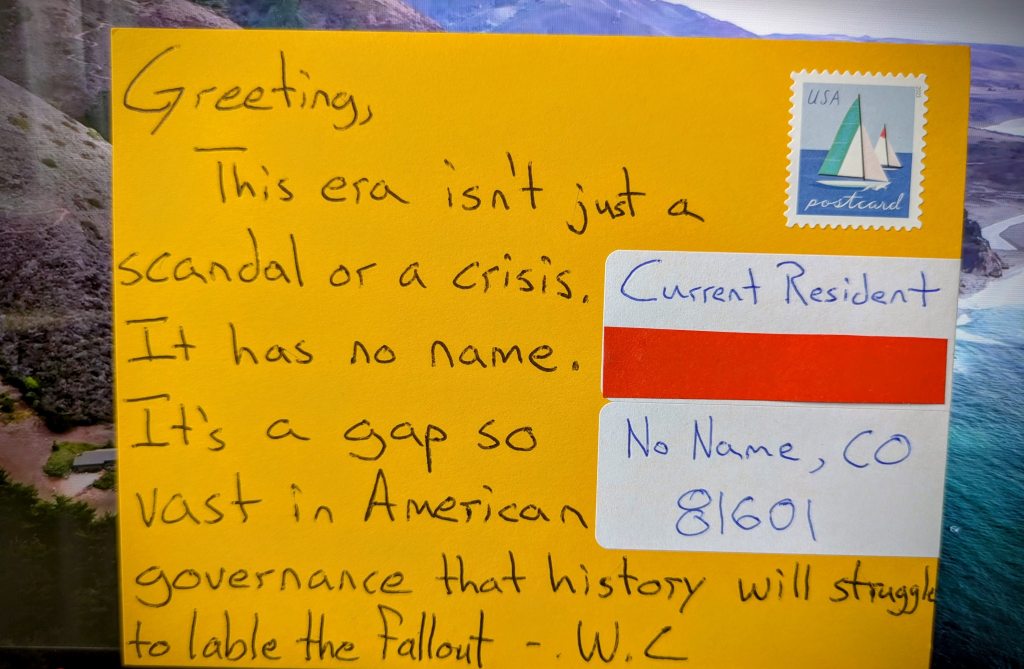 Greeting,
This era isn't just a
scandal or a crisis.
It has no name.
It's a gap so
vast in American
governance that history will struggle
to lable the fallout -. W.C
USA
postcard
Current Resident
No Name, CO
81601